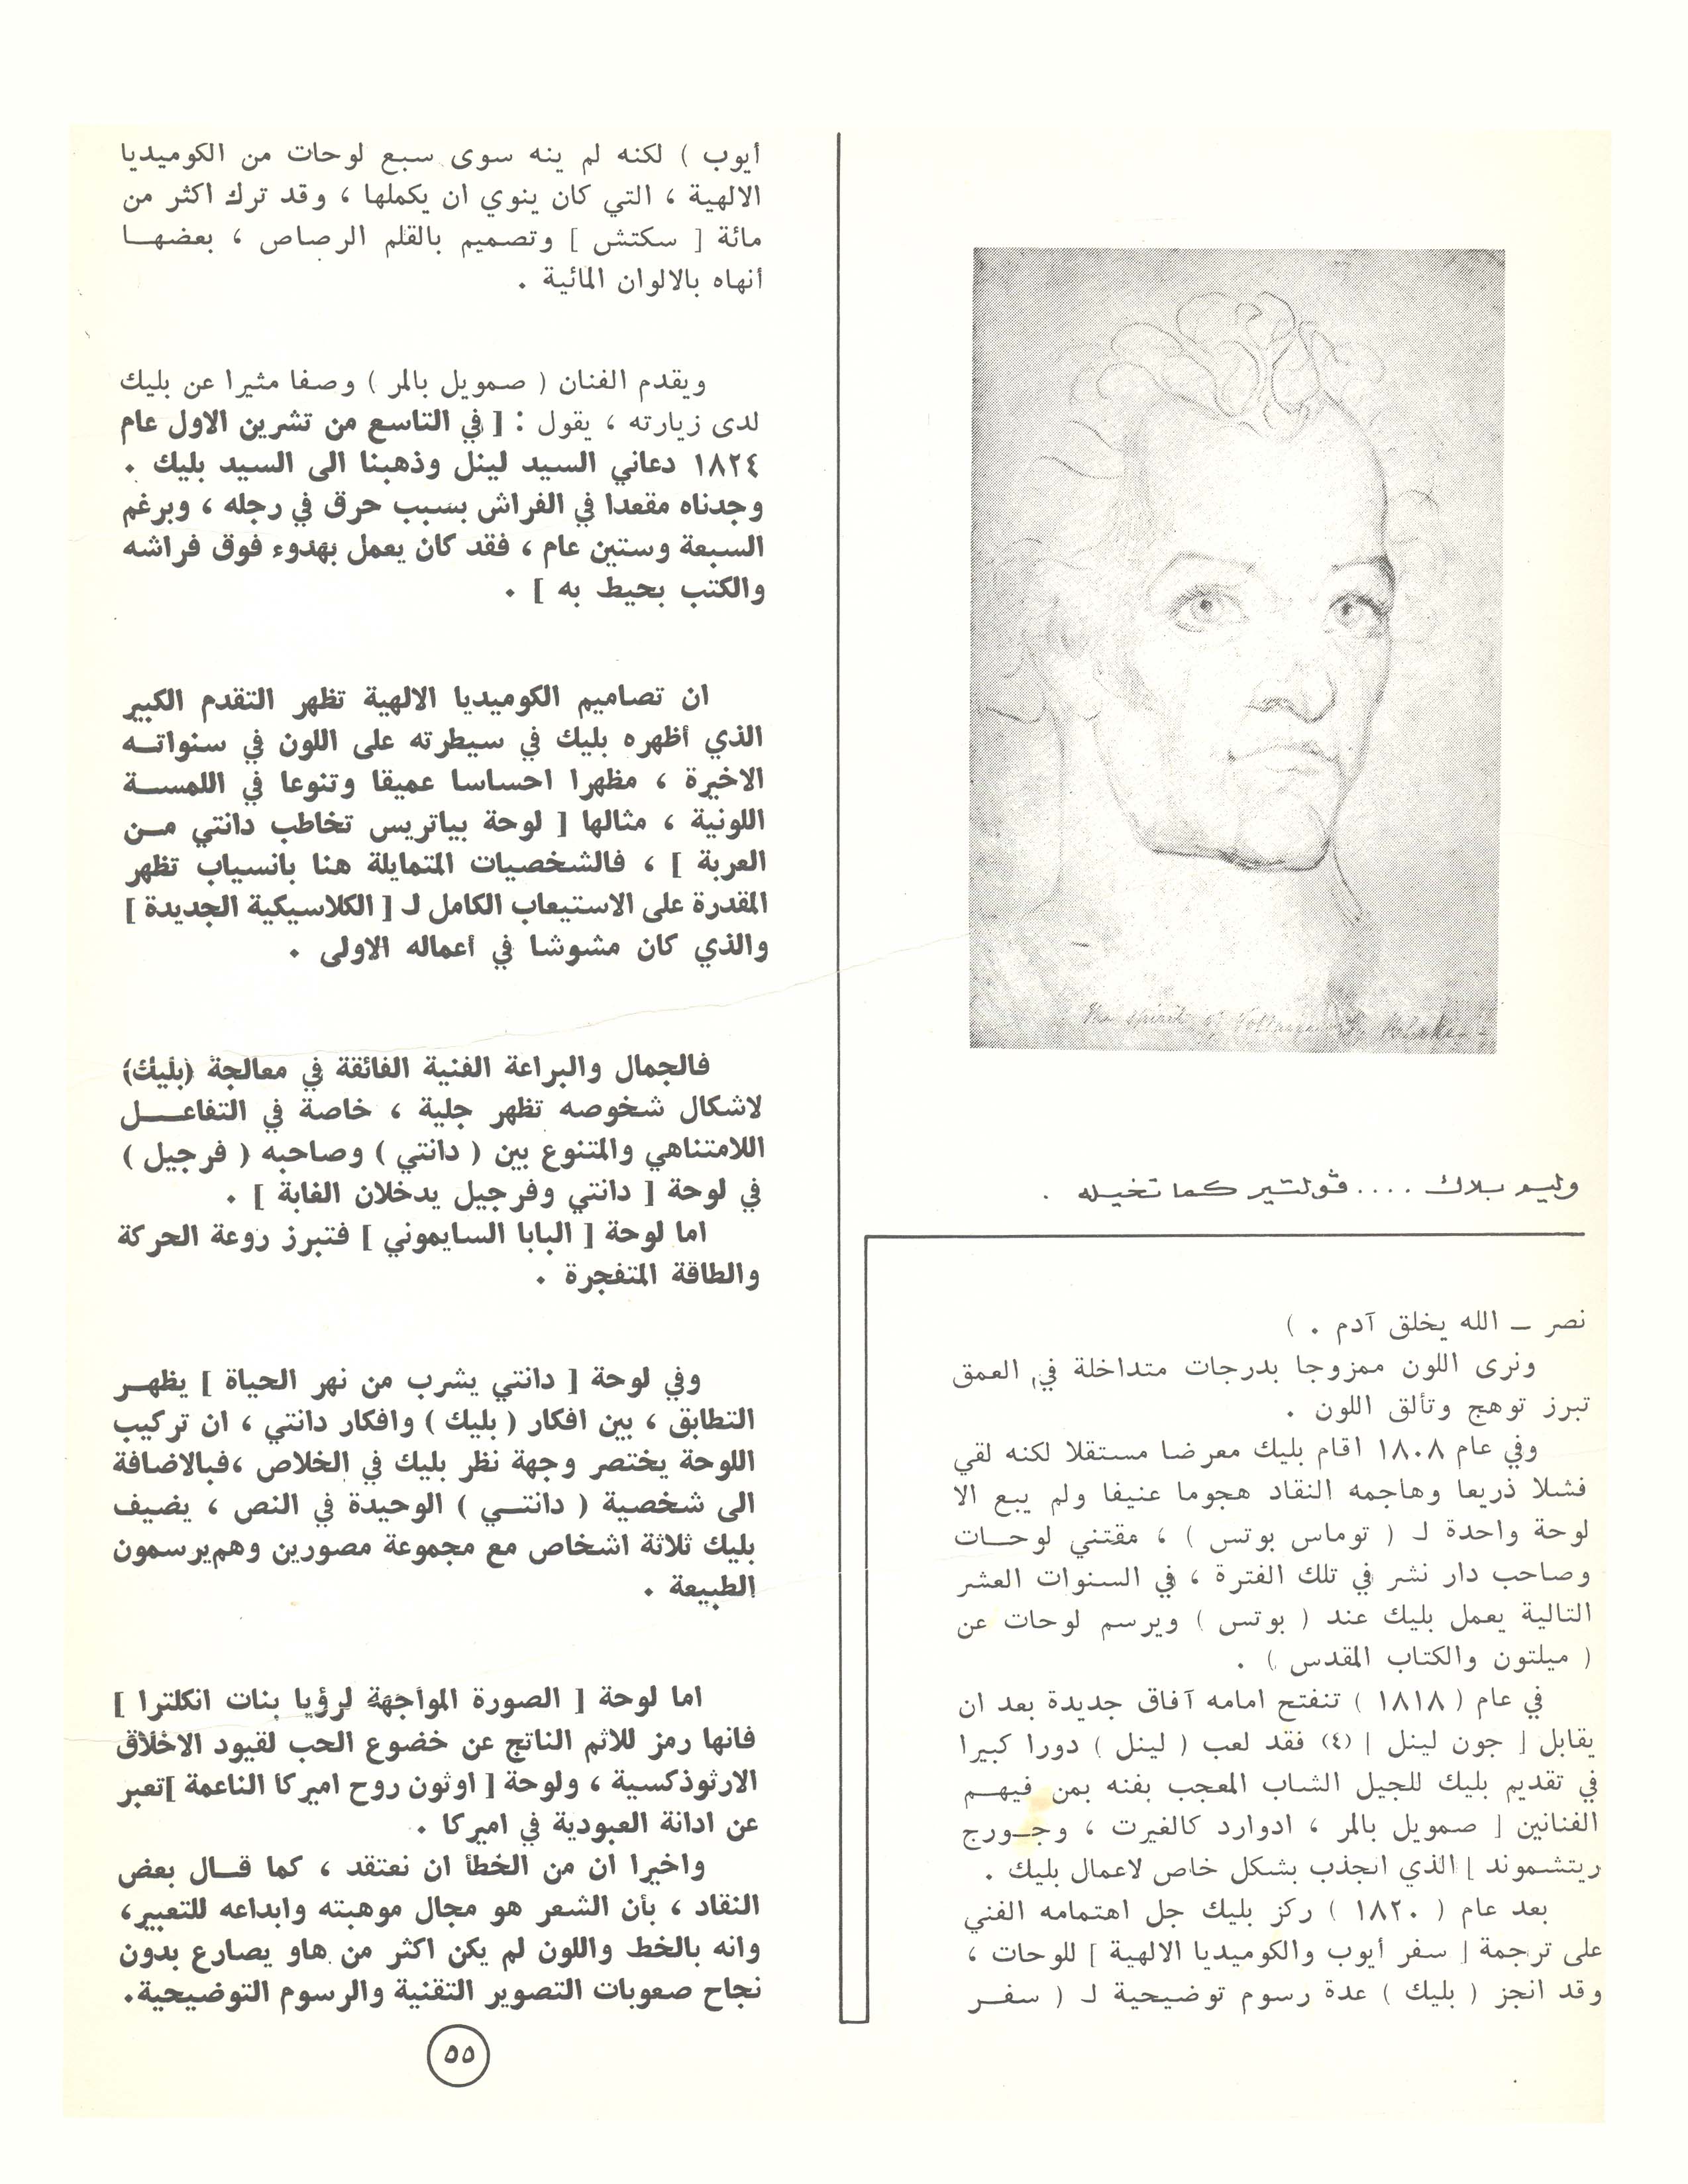 The spirit of Voltaire by Blake
وليم بلاك .... ڤولتير كما تخيله .
نصر ــ الله يخلق آدم . )
ونرى اللون ممزوجا بدرجات متداخلة في العمق
تبرز توهج وتألق اللون .
وفي عام ١٨٠٨ اقام بليك معرضا مستقلا لكنه لقي
فشلا ذريعا وهاجمه النقاد هجوما عنيفا ولم يبع الا
لوحة واحدة لـ ( توماس بوتس ) ، مقتني لوحـات
وصاحب دار نشر في تلك الفترة ، في السنوات العشر
التالية يعمل بليك عند ( بوتس ) ويرسم لوحات عن
( ميلتون والكتاب المقدس ) .
في عام ( ١٨١٨ ) تنفتح امامه آفاق جديدة بعد ان
يقابل [ جون لينل ] (٤) فقد لعب ( لينل ) دورا كبيرا
في تقديم بليك للجيل الشاب المعجب بفنه بمن فيهـم
الفنانين [ صمويل بالمر ، ادوارد كالفيرت ، وجـورج
ريتشموند ] الذي انجذب بشكل خاص لاعمال بليك .
بعد عام ( ١٨٢٠ ) ركز بليك جل اهتمامه الفني
على ترجمة [ سفر أيوب والكوميديا الالهية ] للوحات ،
وقد انجز ( بليك ) عدة رسوم توضيحية لـ ( سفـر
أيوب ) لكنه لم ينه سوى سبع لوحات من الكوميديا
الالهية ، التي كان ينوي ان يكملها ، وقد ترك اكثر من
مائة [ سكتش ] وتصميم بالقلم الرصاص ، بعضهـا
أنهاه بالالوان المائية .
ويقدم الفنان ( صمويل بالمر ) وصفا مثيرا عن بليك
لدى زيارته ، يقول : [ في التاسع من تشرين الاول عام
١٨٢٤ دعاني السيد لينل وذهبنا الى السيد بليك .
وجدناه مقعدا في الفراش بسبب حرق في رجله ، وبرغم
السبعة وستين عام ، فقد كان يعمل بهدوء فوق فراشه
والكتب بحيط به ] .
ان تصاميم الكوميديا الالهية تظهر التقدم الكبير
الذي أظهره بليك في سيطرته على اللون في سنواتـه
الاخيرة ، مظهرا احساسا عميقا وتنوعا في اللمسـة
اللونية ، مثالها [ لوحة بياتريس تخاطب دانتي مـن
العربة ] ، فالشخصيات المتمايلة هنا بانسياب تظهر
المقدرة على الاستيعاب الكامل لـ [ الكلاسيكية الجديدة ]
والذي كان مشوشا في أعماله الاولى .
فالجمال والبراعة الفنية الفائقة في معالجة (بليك)
لاشكال شخوصه تظهر جلية ، خاصة في التفاعـــل
اللامتناهي والمتنوع بين ( دانتي ) وصاحبه ( فرجيل )
في لوحة [ دانتي وفرجيل يدخلان الغابة ] .
اما لوحة [ البابا السايموني ] فتبرز روعة الحركة
والطاقة المتفجرة .
وفي لوحة [ دانتي يشرب من نهر الحياة ] يظهـر
التطابق ، بين افكار ( بليك ) وافكار دانتي ، ان تركيب
اللوحة يختصر وجهة نظر بليك في الخلاص ،فبالاضافة
الى شخصية ( دانتـــي ) الوحيدة في النص ، يضيف
بليك ثلاثة اشخاص مع مجموعة مصورين وهم يرسمون
الطبيعة .
اما لوحة [ الصورة المواجهة لرؤيا بنات انكلترا ]
فانها رمز للاثم الناتج عن خضوع الحب لقيود الاخلاق
الارثوذكسية ، ولوحة [ اوثون روح اميركا الناعمة ]تعبر
عن ادانة العبودية في اميركا .
واخيرا ان من الخطأ ان نعتقد ، كما قــال بعض
النقاد ، بأن الشعر هو مجال موهبته وابداعه للتعبير،
وانه بالخط واللون لم يكن اكثر من هاو يصارع بدون
نجاح صعوبات التصوير التقنية والرسوم التوضيحية.
٥٥